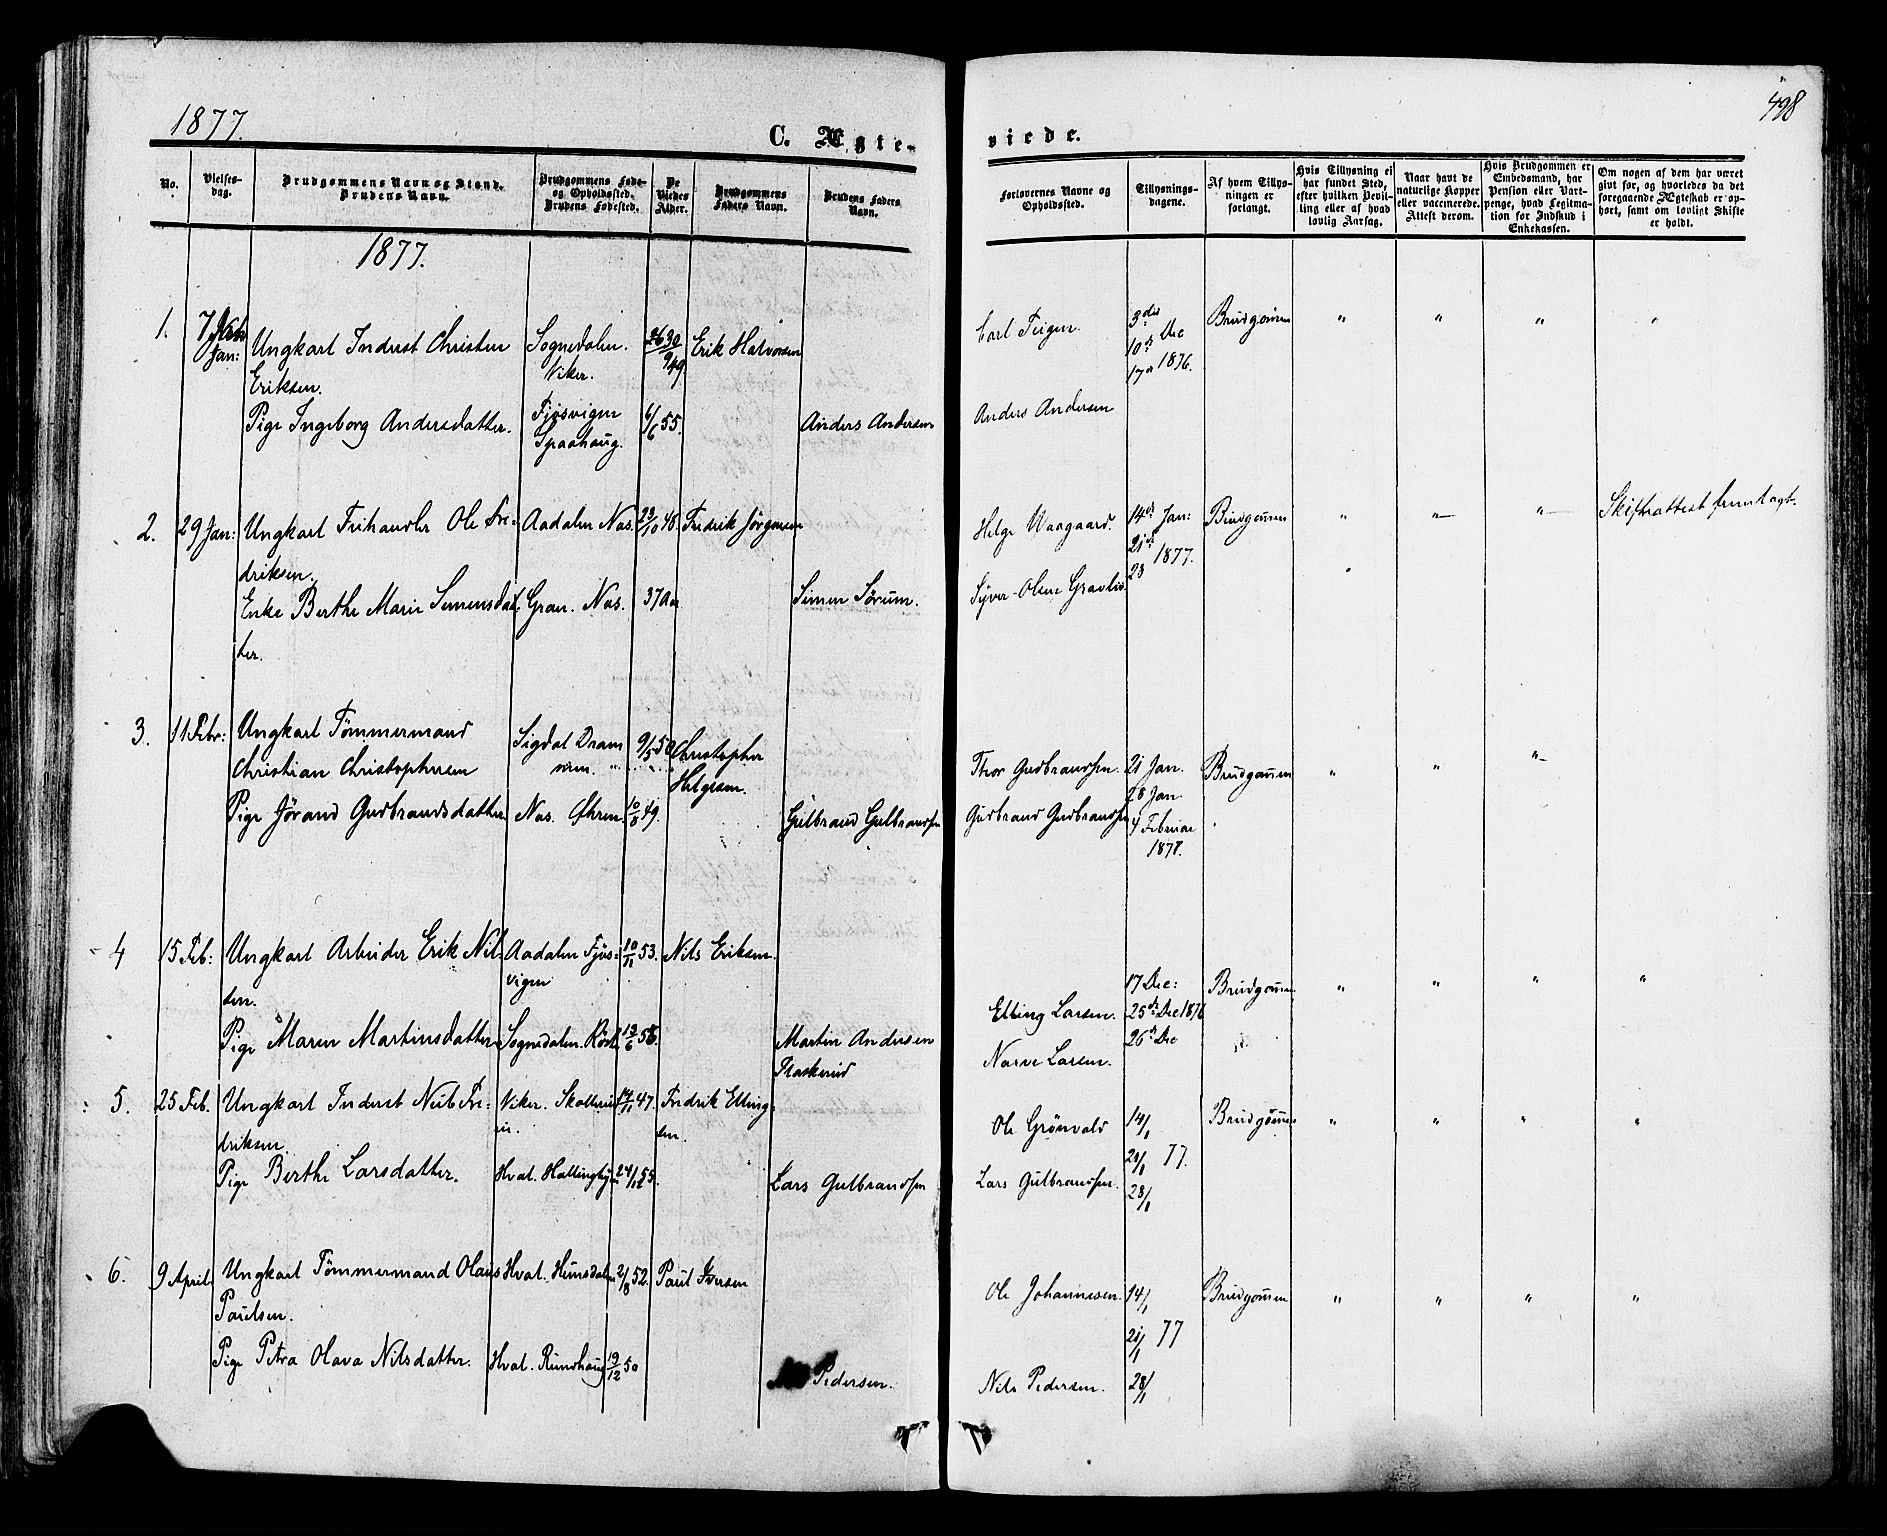 1877.
C. Ægte-
No.
Vielses-
dag.
Brudgommens Navn og Stand.
Brudens Navn.
Brudgommens Føde-
og Opholdssted.
Brudens Fødested.
De
Viedes
Alder.
Brudgommens
Faders Navn.
Brudens Faders
Navn.
1877.
1. 7 Jan: Ungkarl Inderst Christen Sognedalen. 30/9 49 Erik Halvorsen
Eriksen. Viker.
Pige Ingeborg Andersdatter. Fjøsvigen 6/6 55. Anders Andersen
Spaahaug.
2. 29 Jan: Ungkarl Frihandler Ole Fre- Aadalen Næs. 23/10 48. Fredrik Jørgensen
driksen.
Enke Berthe Marie Simensdat- Gran. Næs. 37 Aar Simen Sørum.
ter.
3. 11 Febr: Ungkarl Tømmermand Sigdal Dram 9/5 50 Christopher
Christian Christophersen men. Helgesen.
Pige Jørand Gudbrandsdatter Næs. 10/8 49. Gulbrand Gulbrandsen
4 15 Feb: Ungkarl Arbeider Erik Nil- Aadalen Fjøs- 10/11 53. Nils Eriksen.
sen. vigen
Pige Maren Martinsdatter Sognedalen. 13/6 58. Martin Andersen
5. 25 Feb. Ungkarl Inderst Fre- Viker. 14/11 47. Fredrik Elling-
driksen. sen.
Pige Berthe Larsdatter. Hval. Hallingby 24/12 55. Lars Gulbrandsen
6. 9 April Ungkarl Tømmermand Olaus Hval. Hunsdalen 2/8 52. Paul Iversen
Paulsen.
Pige Petra Olava Nilsdatter. Hval. Rundhaug 19/12 50 Pedersen.
498
viede.
Forlovernes Navne og
Opholdssted.
Tillysnings-
dagene.
Af hvem Tillys-
ningen er
forlangt.
Hvis Tillysning ei
har fundet Sted,
efter hvilken Bevil-
ling eller af hvad
lovlig Aarsag.
Naar havt de
naturlige Kopper
eller vaccinerede.
Attest derom.
Hvis Brudgommen er
Embedsmand, har
Pension eller Vart-
penge, hvad Legitima-
tion for Indskud i
Enkekassen.
Om nogen af dem har været
gift før, og hvorledes da det
foregaaende Ægteskab er op-
hørt, samt om lovligt Skifte
er holdt.
Carl Teigen. 3die Brudgommen " " " "
10de Dec
17de 1876.
Anders Andersen
Helge Waagaard. 14de Jan: Brudgommen " " " Skifteattest fremlagt.
21de 1877.
28
Syver Olsen
Thor Gudbrandsen. 21 Jan. Brudgommen " " "
28 Jan.
Gudbrand Gudbrandsen 4 Februar
1877.
17 Dec: Brudgommen " " " "
Elling Larsen. 25de Dec 1876
26de Dec
Narve Larsen.
Ole Grønvold 14/1 Brudgommen " " " "
21/1 77.
Lars Gulbrandsen. 28/1
Ole Johannesen. 14/1 Brudgommen " " " "
21/1 77
Nils Pedersen. 28/1